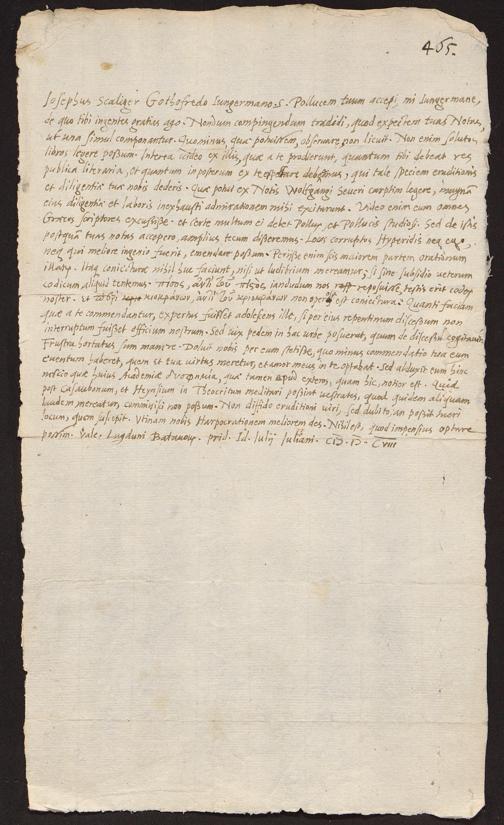 465.
Josephus Scaliger Gothofredo Iungermano. S. Pollucem tuum accepi, mi Iungermane,
de quo tibi ingentes gratias ago. Nondum compingendum tradidi, quod expectem tuas Notas,
ut una simul componantur. Quominus, quae potuissem, observare non licuit. Non enim solutos
libros legere possum. Interea video ex illis, quae a te prodierunt, quantum tibi debeat res
publica literaria, et quantum in posterum ex te debeamus, qui tale specimen eruditionis
et diligentiae tuae nobis dederis. Quae potui ex Notis Wolfgangi Seueri carptim legere, magnam
eius diligentiae et laboris inexhausti admirationem mihi exciturunt. Video enim eum omnes
Graecos scriptores excussisse. et certe multum ei debet Pollux, et Pollucis studiosi. Sed de istis
postquam tuas notas accepero, amplius tecum disseremus. Locus corruptus Hyperidis neq ex me
neq qui meliore ingenio fuerit, emendari possunt. Periisse enim scis maiorem partem orationum
illarum. Itaq coniecturae nihil huc faciunt, nisi ut ludibrium mereamur, si sine subsidio veterum
codicum aliquid tentemus. iamdudum nos reposuisse, testis erit codex
noster. et non opus est coniectura. Quanti faciam
quae a te commendantur, expertus fuisset adolescens ille, si per eius repentinum discessum non
interruptum fuisset officium nostrum. Sed vix pedem in hac urbe posuerat, quum de discessu cogitauit.
Frustra hortatus sum manere. Doluit nobis per eum stetisse, quominus commendatio tua eum
euentum haberet, quem et tua virtus meretur, et amor meus in te optabat. Sed abduxit eum hinc
nescio quae huius Academiae quae tamen apud exteros, quam hic, notior est. Quid
post Casaubonum, et Heynsium in Theocritum meditari possint vestrates, quod quidem aliquam
laudem mereatur, comminisci non possum. Non diffido eruditioni viri, sed dubito, an possit tueri
locum, quem suscepit. Utinam nobis Harpocrationem meliorem des. Nihil est, quod impensius optare
possim. Vale. Lugduni Batavor. prid. Id. Iulij Iuliani. CIↃ. IↃ. CVIII